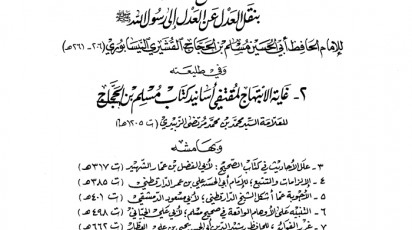 بنقل العدل عن العدل إلى رسول الله ﷺ
للإمام الحافظ أبي الحسين مسلم بن الحجاج القشيري النيسابوري (٢٠٦-٢٦١هـ)
وفي طليعته
٢- غاية الابتهاج لمقتفي أسانيد كتاب مسلم بن الحجاج
للعلامة السيد محمد بن محمد مرتضى الزبيدي (ت ١٢٠٥هـ)
وبهامشه
٣ - علل الأحاديث في كتاب الصحيح: لأبي الفضل بن عمار الشهيد (ت ٣١٧هـ)
٤ - الإلزامات والتتبع: للإمام أبي الحسن علي بن عمر الدارقطني (ت ٣٨٥هـ)
٥ - الأجوبة عما أشكل الشيخ الدارقطني: لأبي مسعود الدمشقي (ت ٤٠١هـ)
٦ - التنبيه على الأوهام الواقعة في صحيح مسلم: لأبي علي الجياني (ت ٤٩٨هـ)
٧ - غرر الفوائد: للحافظ رشيد الدين أبي الحسين يحيى بن علي العطار (ت ٦٦٢هـ)